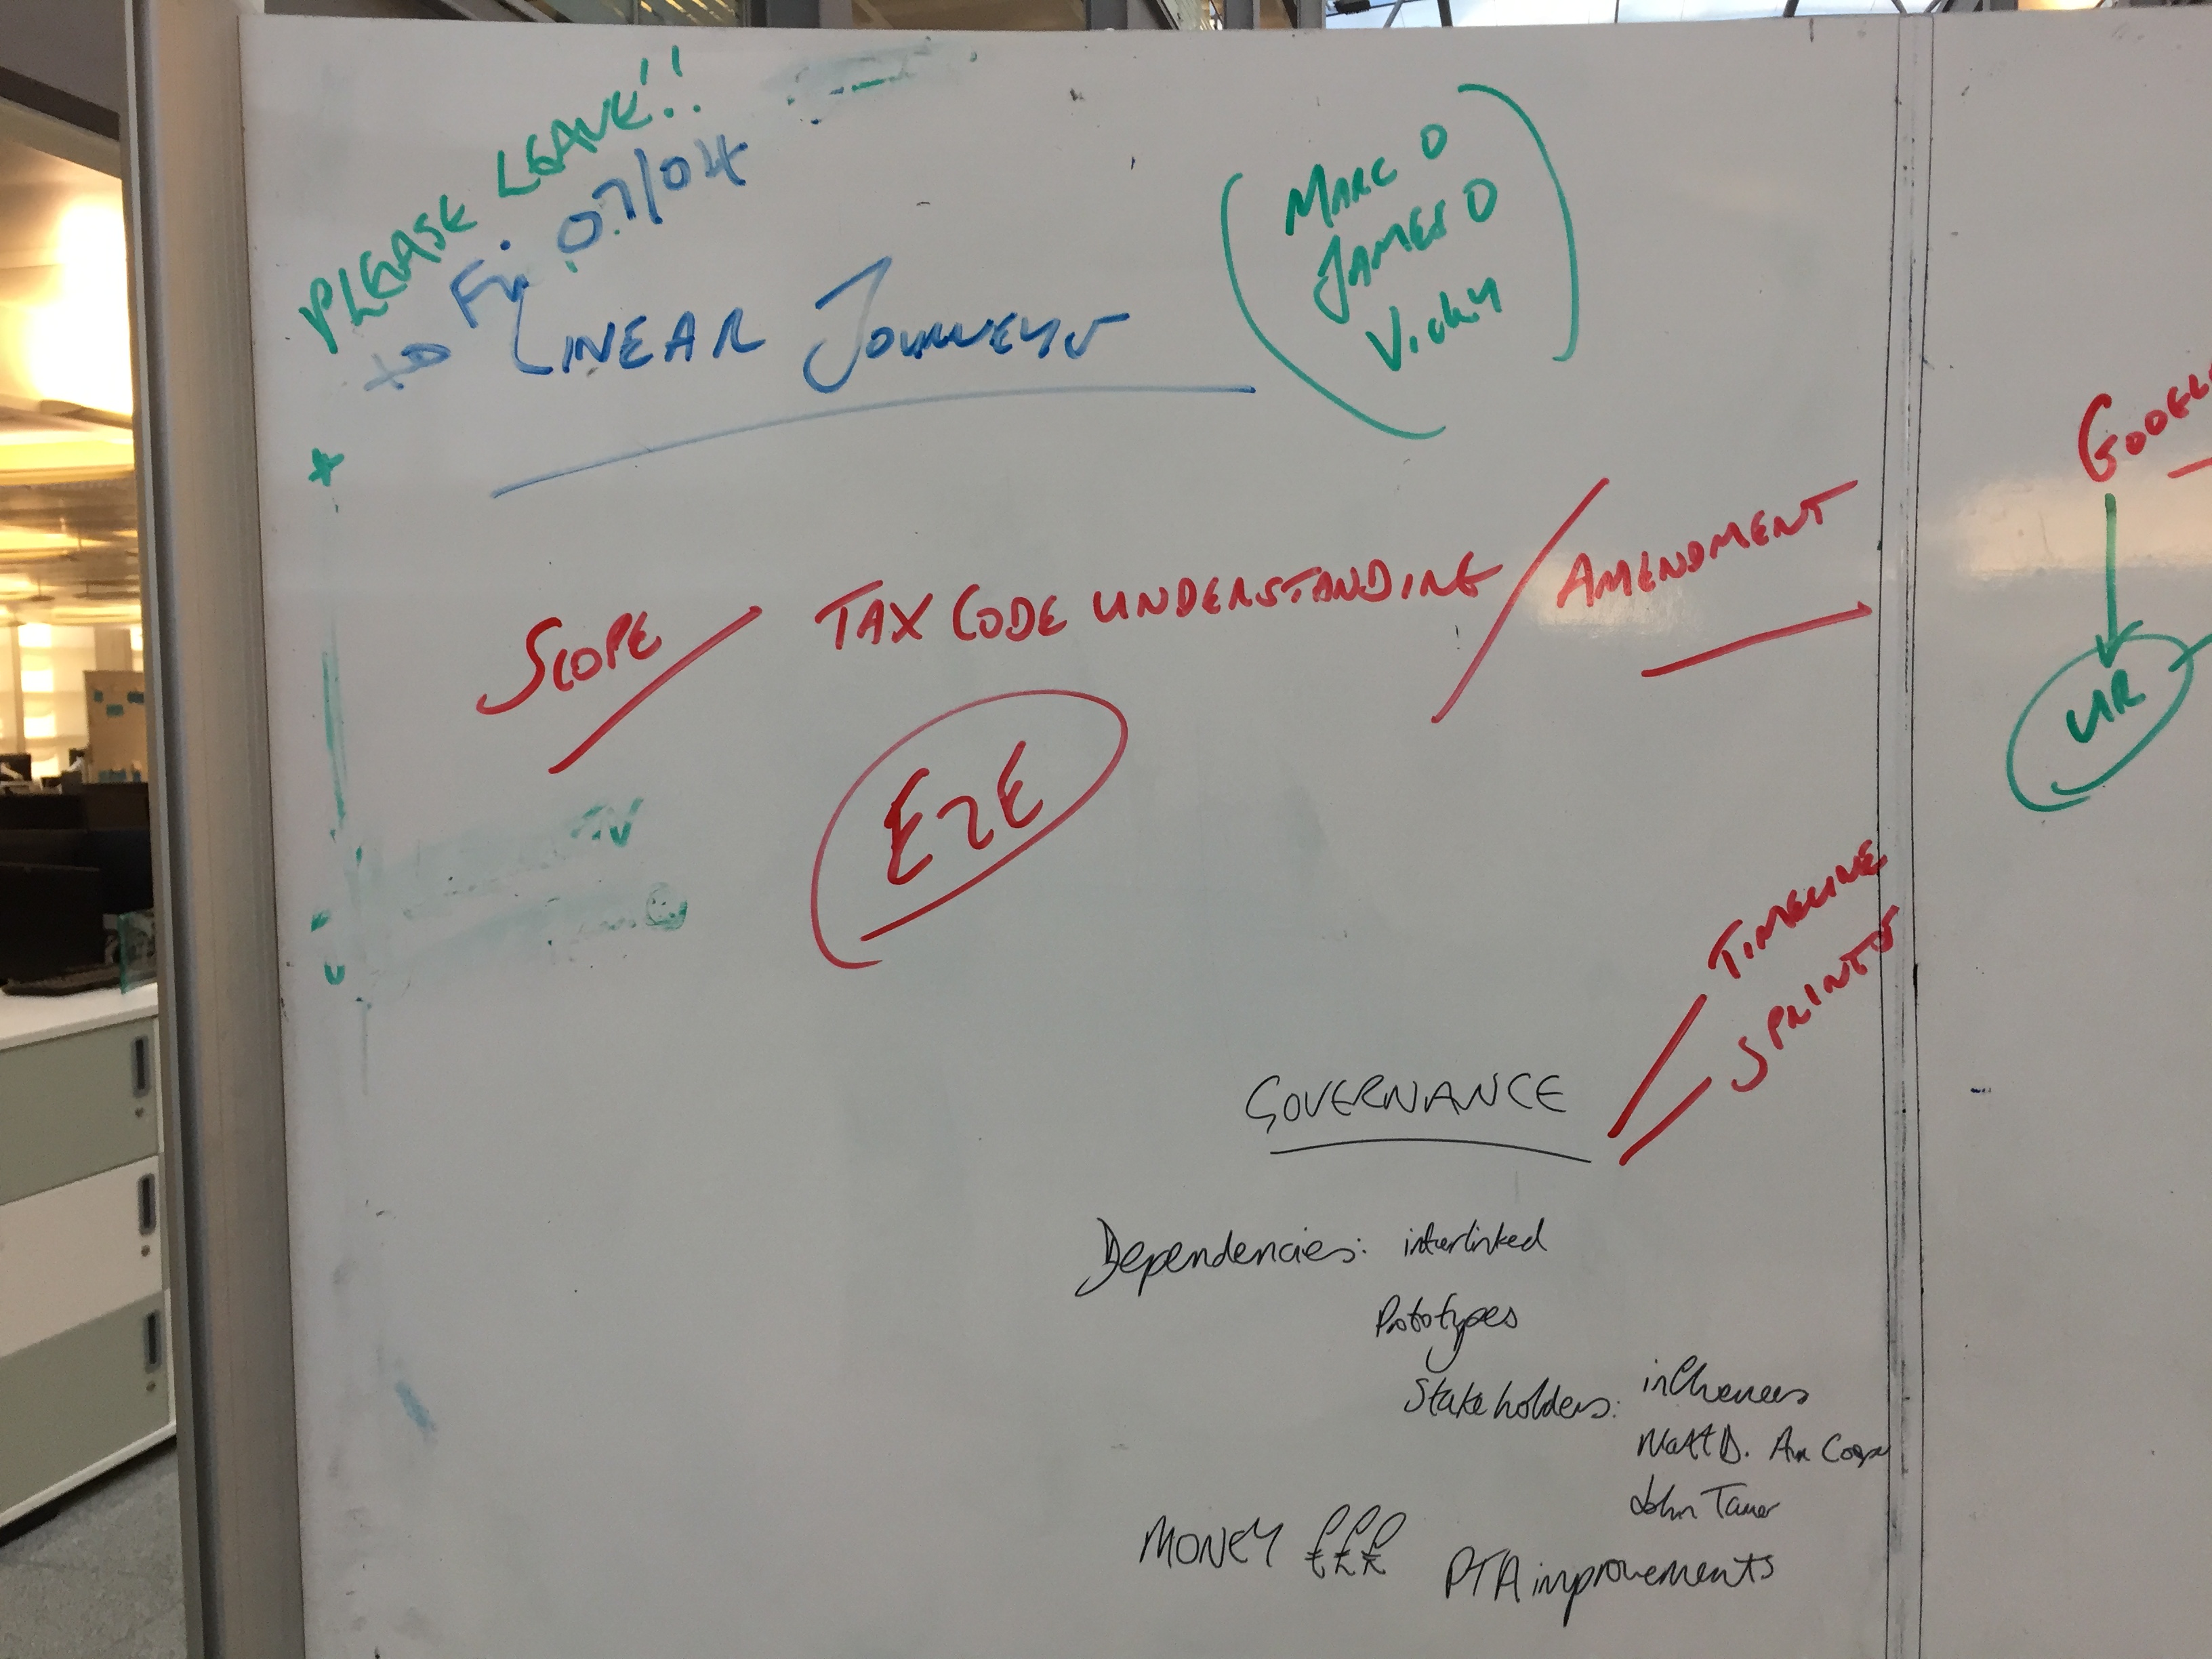 PLEASE LEAVE!!
Fri 07/04
LINEAR JOURNEYS
MARC O
JAMES O
Vicky
SCOPE / TAX CODE UNDERSTANDING / AMENDMENT
E2E
UR
TIMELINE
SPRINTS
GOVERNANCE
Dependencies: interlinked
Prototypes
Stakeholders: influences
Matt D.
John
MONEY £££
PTA improvements